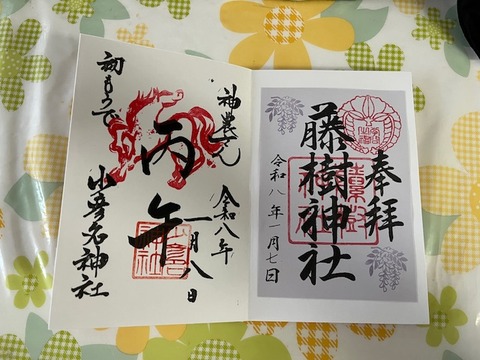 奉拝
藤樹神社
令和八年一月七日
神農さん
令和八年
一月八日
丙午
初もうで
少彦名神社